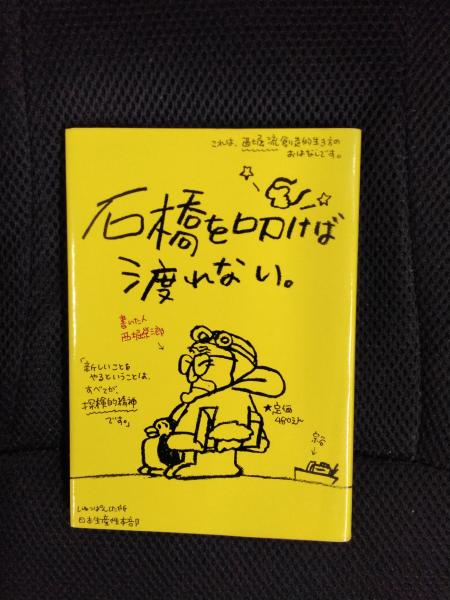 これは、西堀流創造的生き方の
おはなしです。
石橋を叩けば
渡れない。
書いた人
西堀栄三郎
「新しいことを
やるということは、
すべてが、
探検的精神
です。」
★定価
480えん
宗谷
しゅっぱんしたところ
日本生産性本部